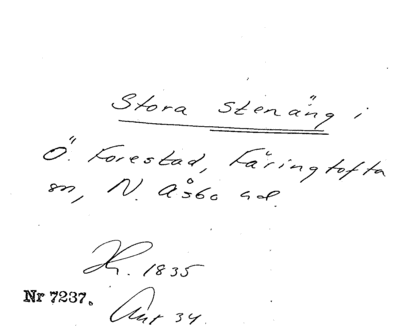 Stora Stenäng i
Ö. Forestad, Färingtofta
sn, N. Åsbo hd.
1835
Nr 7237.
34.